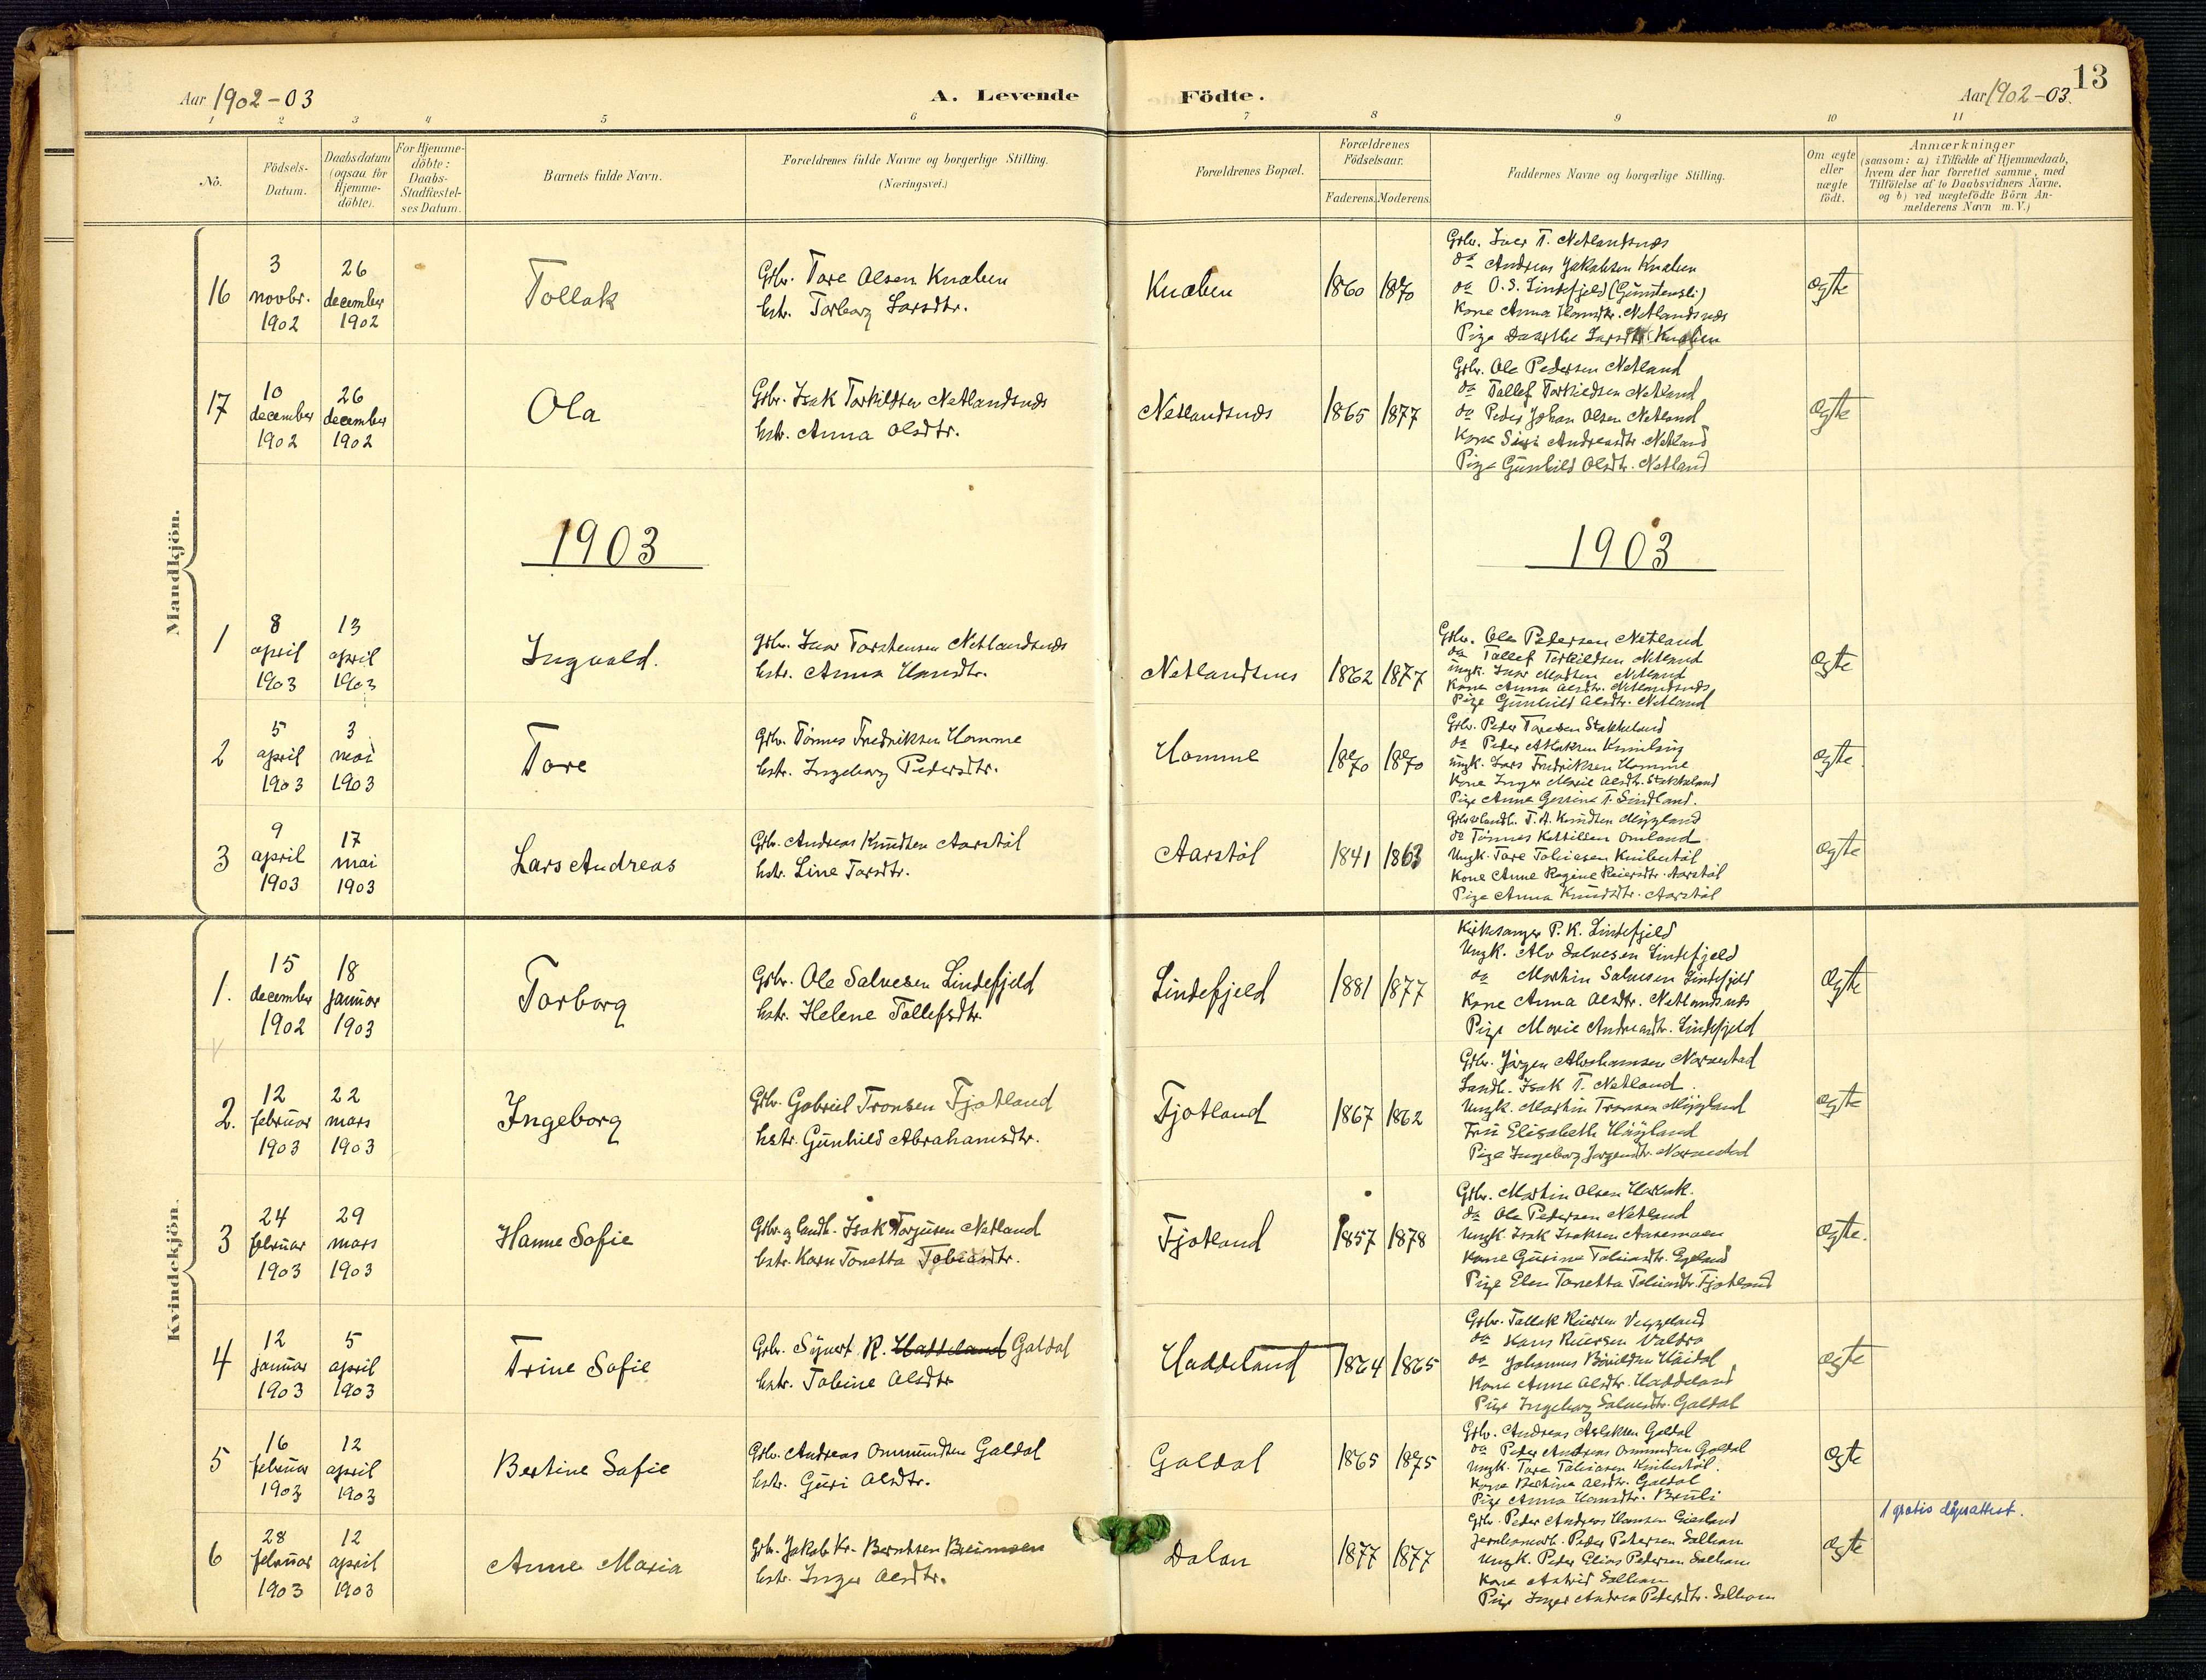 13
Aar 1902-03
A. Levende Födte.
Aar 1902-03.
1 2 3 4 5 6 7 8 9 10 11
No.
Födsels-
Datum.
Daabsdatum
(ogsaa for
Hjemme-
döbte).
For Hjemme-
döbte:
Daabs-
Stadfæstel-
ses Datum.
Barnets fulde Navn.
Forældrenes fulde Navne og borgerlige Stilling.
(Næringsvei.)
Forældrenes Bopæl.
Forældrenes
Födselsaar.
Faderens. Moderens.
Faddernes Navne og borgerlige Stilling.
Om ægte
eller
uægte
födt.
Anmærkninger
(saasom: a) i Tilfælde af Hjemmedaab,
hvem der har forrettet samme, med
Tilföielse af to Daabsvidners Navne,
og b) ved uægtefödte Börn An-
melderens Navn m. V.)
Mandkjön.
16
3
novbr.
1902
26
december
1902
Tollak
Grbr. Tore Olsen Knaben
hstr. Torborg Larsdtr.
Knaben
1860 1870
Grbr. Iver T. Netlandsnæs
do Andreas Jakobsen Knaben
do O. S. Lindefjeld
Kone Anna Hansdtr. Netlandsnæs
Pige Larsdtr. Knaben
ægte
17
10
december
1902
26
december
1902
Ola
Grbr. Isak Torkildsen Netlandsnæs
hstr. Anna Olsdtr.
Netlandsnæs
1865 1877
Grbr. Ole Pedersen Netland
do Tallef Torkildsen Netland
do Peder Johan Olsen Netland
Kone Siri Andreasdtr. Netland
Pige Gunhild Olsdtr. Netland
ægte
1903
1903
1
8
april
1903
13
april
1903
Ingvald.
Grbr. Ivar Torstensen Netlandsnæs
hstr. Anna Hansdtr.
Netlandsnæs
1862 1877
Grbr. Ole Pedersen Netland
do Tallef Torkildsen Netland
ungk. Ivar Madsen Netland
Kone Anna Olsdtr. Netlandsnæs
Pige Gunhild Olsdtr. Netland
ægte
2
5
april
1903
3
mai
1903
Tore
Grbr. Tönnes Fredriksen Homme
hstr. Ingeborg Pedersdtr.
Homme
1870 1870
Grbr. Peder Toresen Stakkeland
do Peder
ungk. Lars Fredriksen Homme
Kone Inger Marie Olsdtr. Stakkeland
Pige Anna Gesine T. Sindland.
ægte
3
9
april
1903
17
mai
1903
Lars Andreas
Grbr. Andreas Knudsen Aarstöl
hstr. Line Torsdtr.
Aarstöl
1841 1863
T. A. Knudsen Mygland
do Tönnes Kettilsen Omland
Ungk. Tore Tobiasen Knibestöl
Kone Anne Regine Reiersdtr. Aarstöl
Pige Anna Knudsdtr. Aarstöl
ægte
Kvindekjön.
1.
15
december
1902
18
januar
1903
Torborg
Grbr. Ole Salvesen Lindefjeld
hstr. Helene Tollefsdtr.
Lindefjeld
1881 1877
Kirkesanger P. K. Lindefjeld
Ungk. Alv Salvesen Lindefjeld
do Martin Salvesen Lindefjeld
Kone Anna Olsdtr. Netlandsnæs
Pige Marie Andreasdtr. Lindefjeld
ægte
2.
12
februar
1903
22
mars
1903
Ingeborg
Grbr. Gabriel Tronsen Fjotland
hstr. Gunhild Abrahamsdtr.
Fjotland
1867 1862
Grbr. Jörgen Abrahamsen Narvestad
Landh. Isak T. Netland.
Ungk. Martin Tronsen Mygland
Fru Elisabeth Höyland
Pige Ingeborg Jörgensdtr. Narvestad
ægte
3
24
februar
1903
29
mars
1903
Hanne Sofie
Grbr. og landh. Isak Torjusen Netland
hstr. Karn Tonetta Tobiasdtr.
Fjotland
1857 1878
Grbr. Martin Olsen
do Ole Pedersen Netland
Ungk. Isak Isaksen Aasemoen
Kone Gusine Tobiasdtr. Egeland
Pige Elen Tonetta Tobiasdtr. Fjotland
ægte.
4
12
januar
1903
5
april
1903
Trine Sofie
Grbr. Sigvert R. Haddeland Galdal
hstr. Tobine Olsdtr
Haddeland
1864 1865
Grbr. Tallak Reiersen Veggeland
do Hans Reiersen
do Johannes
Kone Anna Olsdtr. Haddeland
Pige Ingeborg Salvesdtr. Galdal
ægte
5
16
februar
1903
12
april
1903
Bertine Sofie
Grbr. Andreas Ommundsen Galdal
hstr. Guri Olsdtr.
Galdal
1865 1875
Grbr. Andreas Aslaksen Galdal
do Peder Andreas Ommundsen Galdal
Ungk. Tore Tobiasen Knibestöl.
Kone Bertine Olsdtr. Galdal
Pige Anna Hansdtr. Bruli
ægte
6
28
februar
1903
12
april
1903
Anne Maria
Grbr. Jakob Kr. Berntsen Breimoen
hstr. Inger Olsdtr.
Dalan
1877 1877
Grbr. Peder Andreas Hansen
Peder Petersen Solhom
Ungk. Peder Elias Pedersen Solhom
Kone Astrid Solhom
Pige Inger Andrea Pedersdtr. Solhom
ægte
1 gratis dåpsattest.